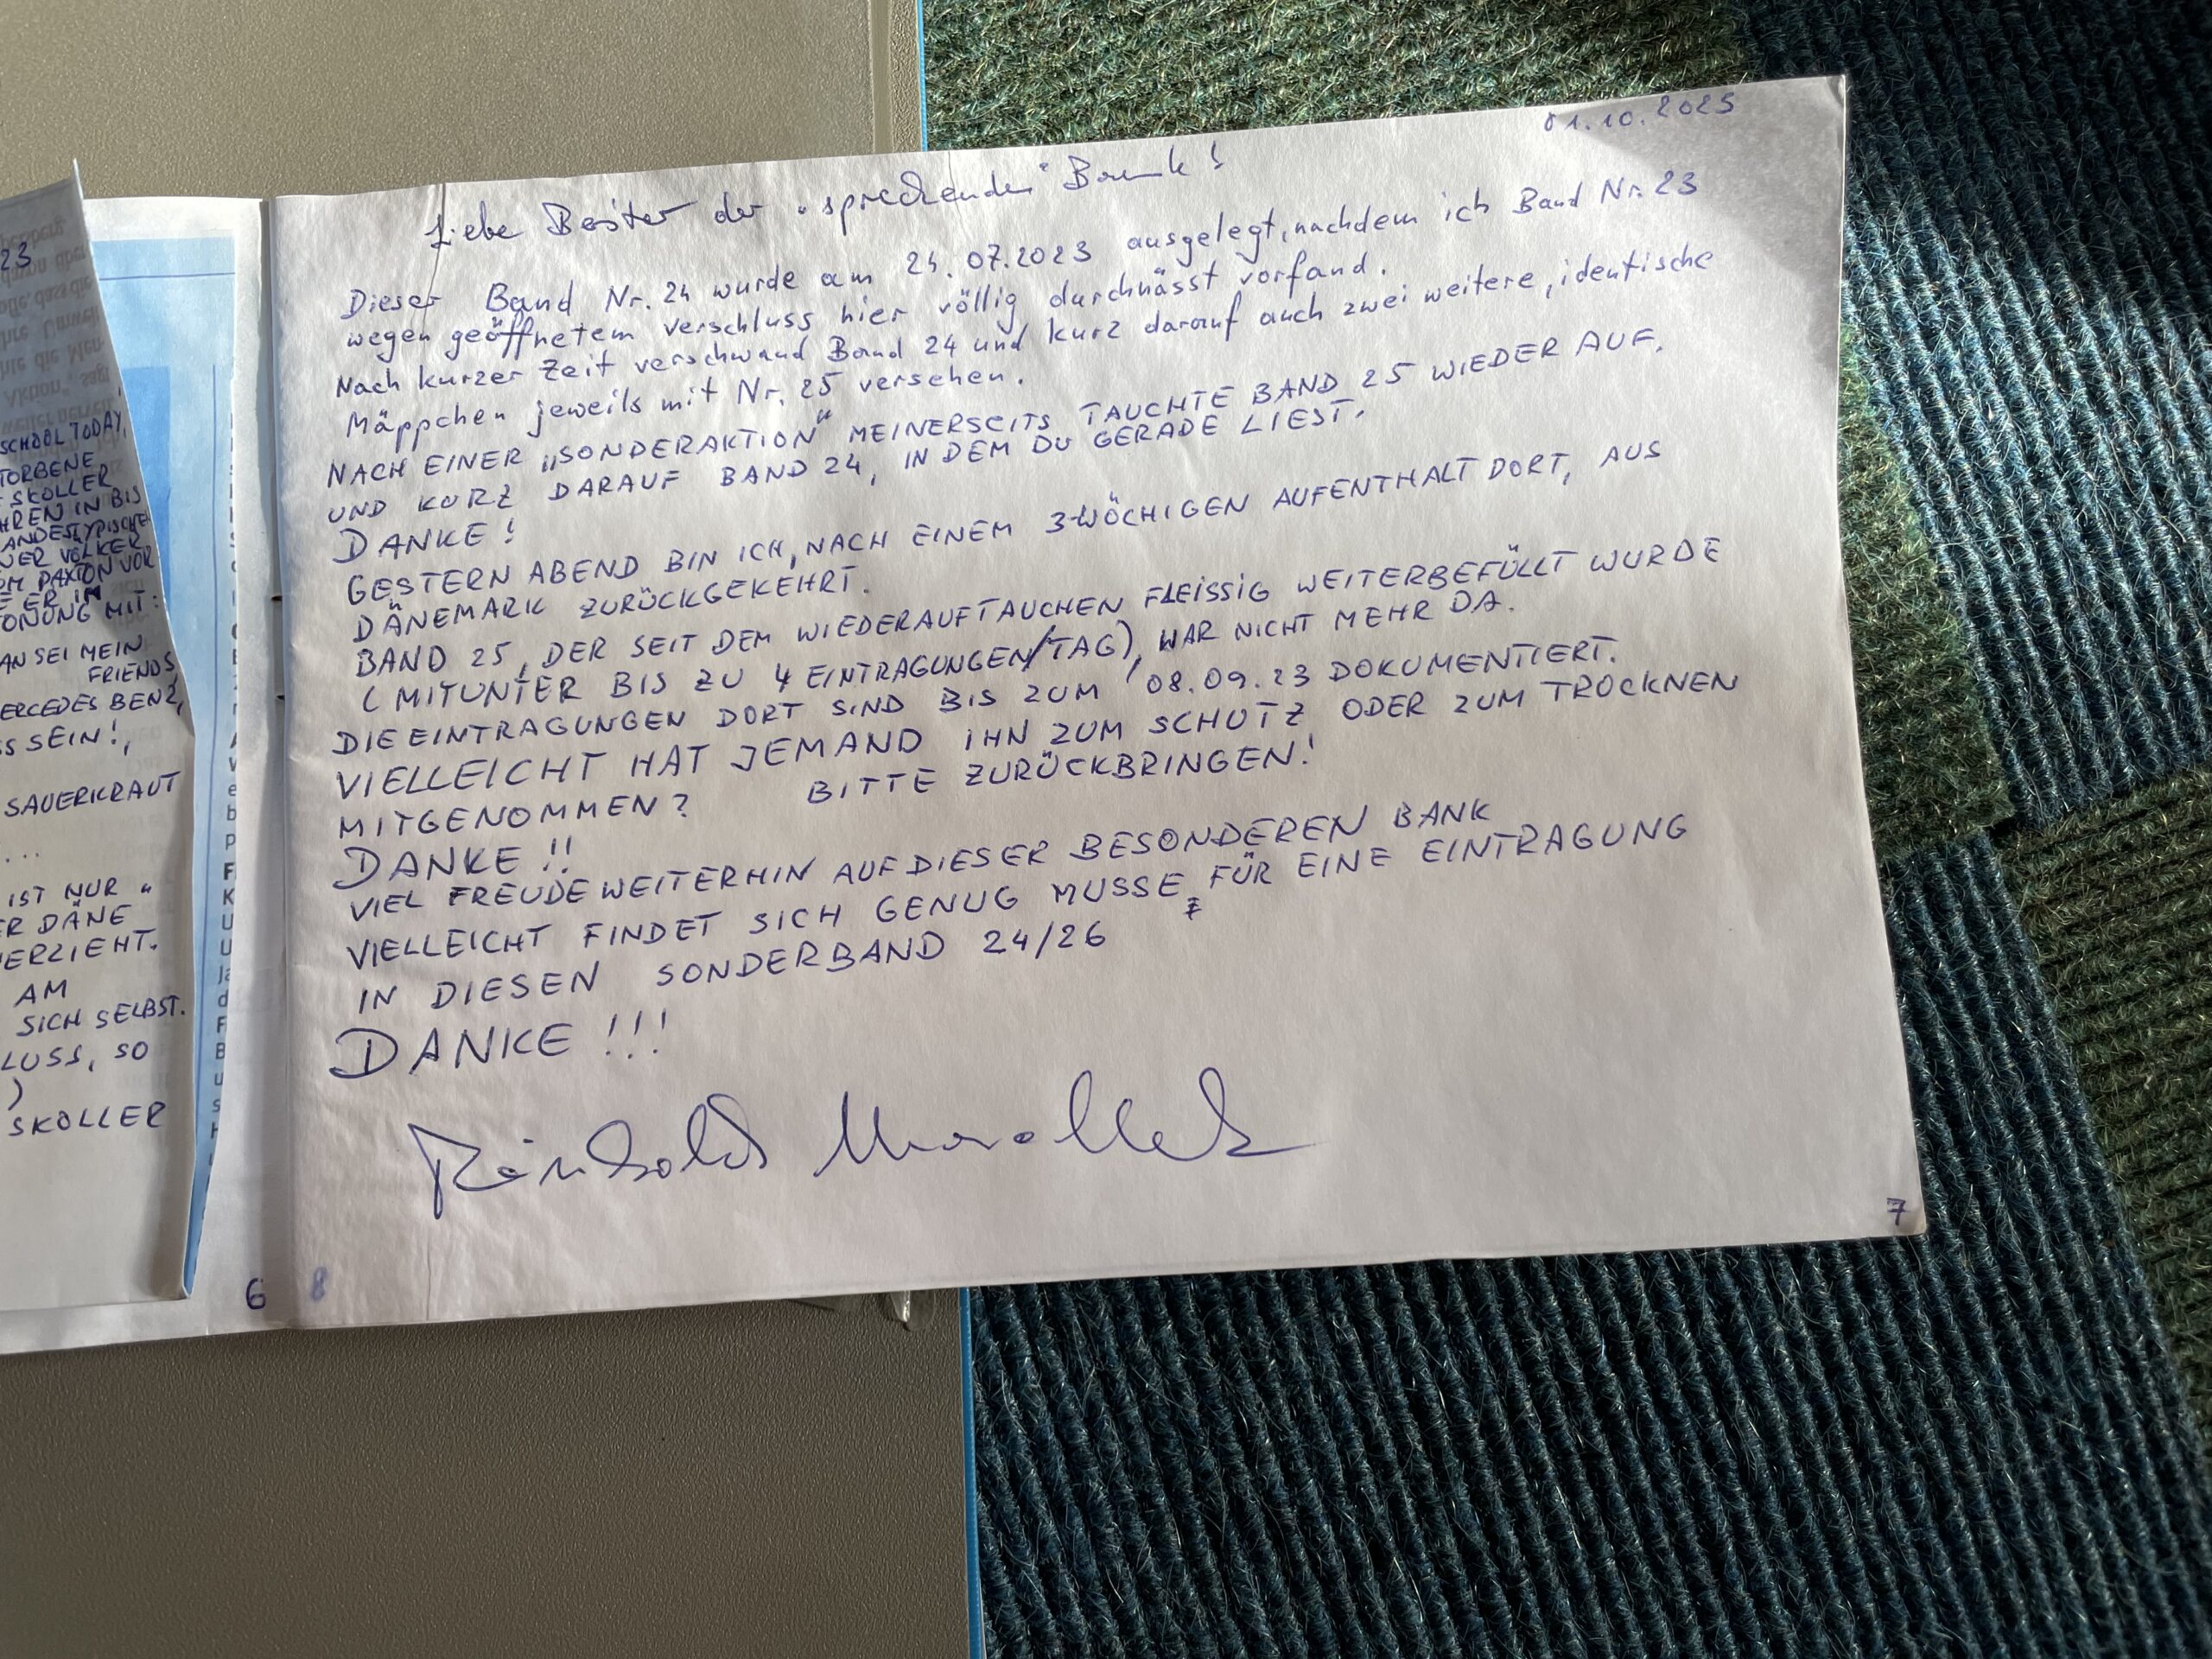 23
SCHOOL TODAY,
TORBENE
SKOLLER
HREN IN BIS
ANDESTYPISCHE
NER VÖLKER
OM PAXTON VOR
E ER IM
TONUNG MIT:
AN SEI MEIN
FRIENDS
ERCEDES BENZ,
SS SEIN!,
SAUERKRAUT
...
IST NUR "
ER DÄNE
ERZIEHT.
AM
SICH SELBST.
LUSS, SO
)
SKOLLER
6
01.10.2025
Liebe der "sprechenden" Bank!
Dieser Band Nr. 24 wurde am 24.07.2023 ausgelegt, nachdem ich Band Nr. 23
wegen geöffnetem Verschluss hier völlig durchnässt vorfand.
Nach kurzer Zeit verschwand Band 24 und kurz darauf auch zwei weitere, identische
Mäppchen jeweils mit Nr. 25 versehen.
NACH EINER „SONDERAKTION" MEINERSEITS TAUCHTE BAND 25 WIEDER AUF.
UND KURZ DARAUF BAND 24, IN DEM DU GERADE LIEST.
DANKE!
GESTERN ABEND BIN ICH, NACH EINEM 3-WÖCHIGEN AUFENTHALT DORT, AUS
DÄNEMARK ZURÜCKGEKEHRT.
BAND 25, DER SEIT DEM WIEDERAUFTAUCHEN FLEISSIG WEITERBEFÜLLT WURDE
(MITUNTER BIS ZU 4 EINTRAGUNGEN/TAG), WAR NICHT MEHR DA.
DIE EINTRAGUNGEN DORT SIND BIS ZUM 08.09.23 DOKUMENTIERT.
VIELLEICHT HAT JEMAND IHN ZUM SCHUTZ ODER ZUM TROCKNEN
MITGENOMMEN? BITTE ZURÜCKBRINGEN!
DANKE!!
VIEL FREUDE WEITERHIN AUF DIESER BESONDEREN BANK
VIELLEICHT FINDET SICH GENUG MUSSE, FÜR EINE EINTRAGUNG
IN DIESEN SONDERBAND 24/26
DANKE!!!
Reinhold
8
7